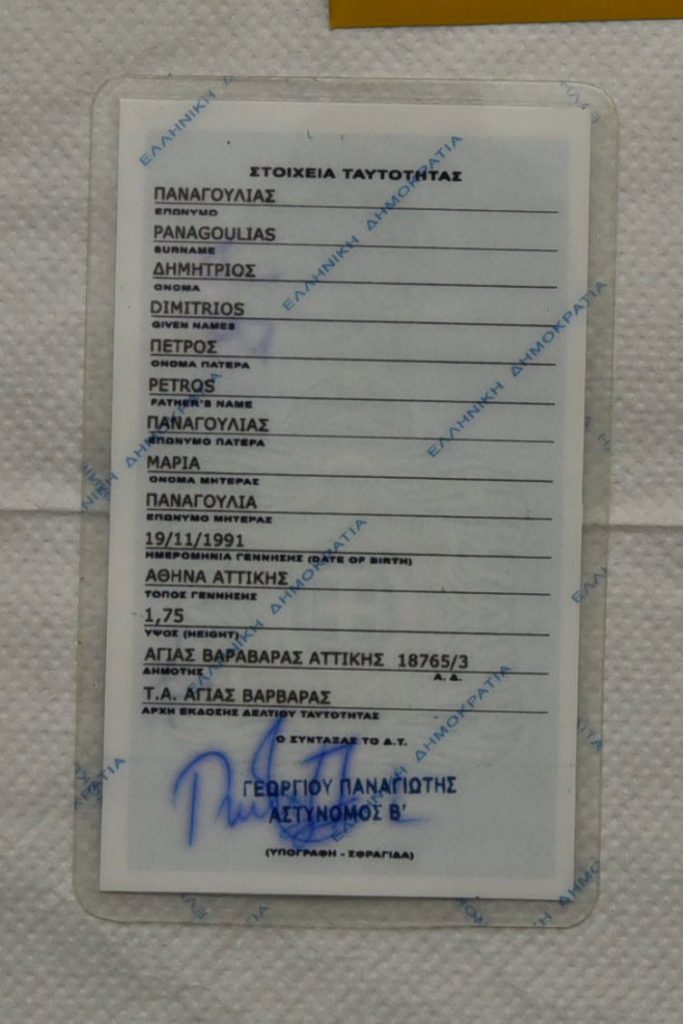 ΣΤΟΙΧΕΙΑ ΤΑΥΤΟΤΗΤΑΣ
ΠΑΝΑΓΟΥΛΙΑΣ
ΕΠΩΝΥΜΟ
PANAGOULIAS
SURNAME
ΔΗΜΗΤΡΙΟΣ
ΟΝΟΜΑ
DIMITRIOS
GIVEN NAMES
ΠΕΤΡΟΣ
ΟΝΟΜΑ ΠΑΤΕΡΑ
PETROS
FATHER'S NAME
ΠΑΝΑΓΟΥΛΙΑΣ
ΕΠΩΝΥΜΟ ΠΑΤΕΡΑ
ΜΑΡΙΑ
ΟΝΟΜΑ ΜΗΤΕΡΑΣ
ΠΑΝΑΓΟΥΛΙΑ
ΕΠΩΝΥΜΟ ΜΗΤΕΡΑΣ
19/11/1991
ΗΜΕΡΟΜΗΝΙΑ ΓΕΝΝΗΣΗΣ (DATE OF BIRTH)
ΑΘΗΝΑ ΑΤΤΙΚΗΣ
ΤΟΠΟΣ ΓΕΝΝΗΣΗΣ
1,75
ΥΨΟΣ (HEIGHT)
ΑΓΙΑΣ ΒΑΡΑΒΑΡΑΣ ΑΤΤΙΚΗΣ 18765/3
ΔΗΜΟΤΗΣ Α. Δ.
Τ.Α. ΑΓΙΑΣ ΒΑΡΒΑΡΑΣ
ΑΡΧΗ ΕΚΔΟΣΗΣ ΔΕΛΤΙΟΥ ΤΑΥΤΟΤΗΤΑΣ
Ο ΣΥΝΤΑΞΑΣ ΤΟ Δ.Τ.
ΓΕΩΡΓΙΟΥ ΠΑΝΑΓΙΩΤΗΣ
ΑΣΤΥΝΟΜΟΣ Β'
(ΥΠΟΓΡΑΦΗ - ΣΦΡΑΓΙΔΑ)
ΕΛΛΗΝΙΚΗ ΔΗΜΟΚΡΑΤΙΑ
ΕΛΛΗΝΙΚΗ ΔΗΜΟΚΡΑΤΙΑ
ΕΛΛΗΝΙΚΗ ΔΗΜΟΚΡΑΤΙΑ